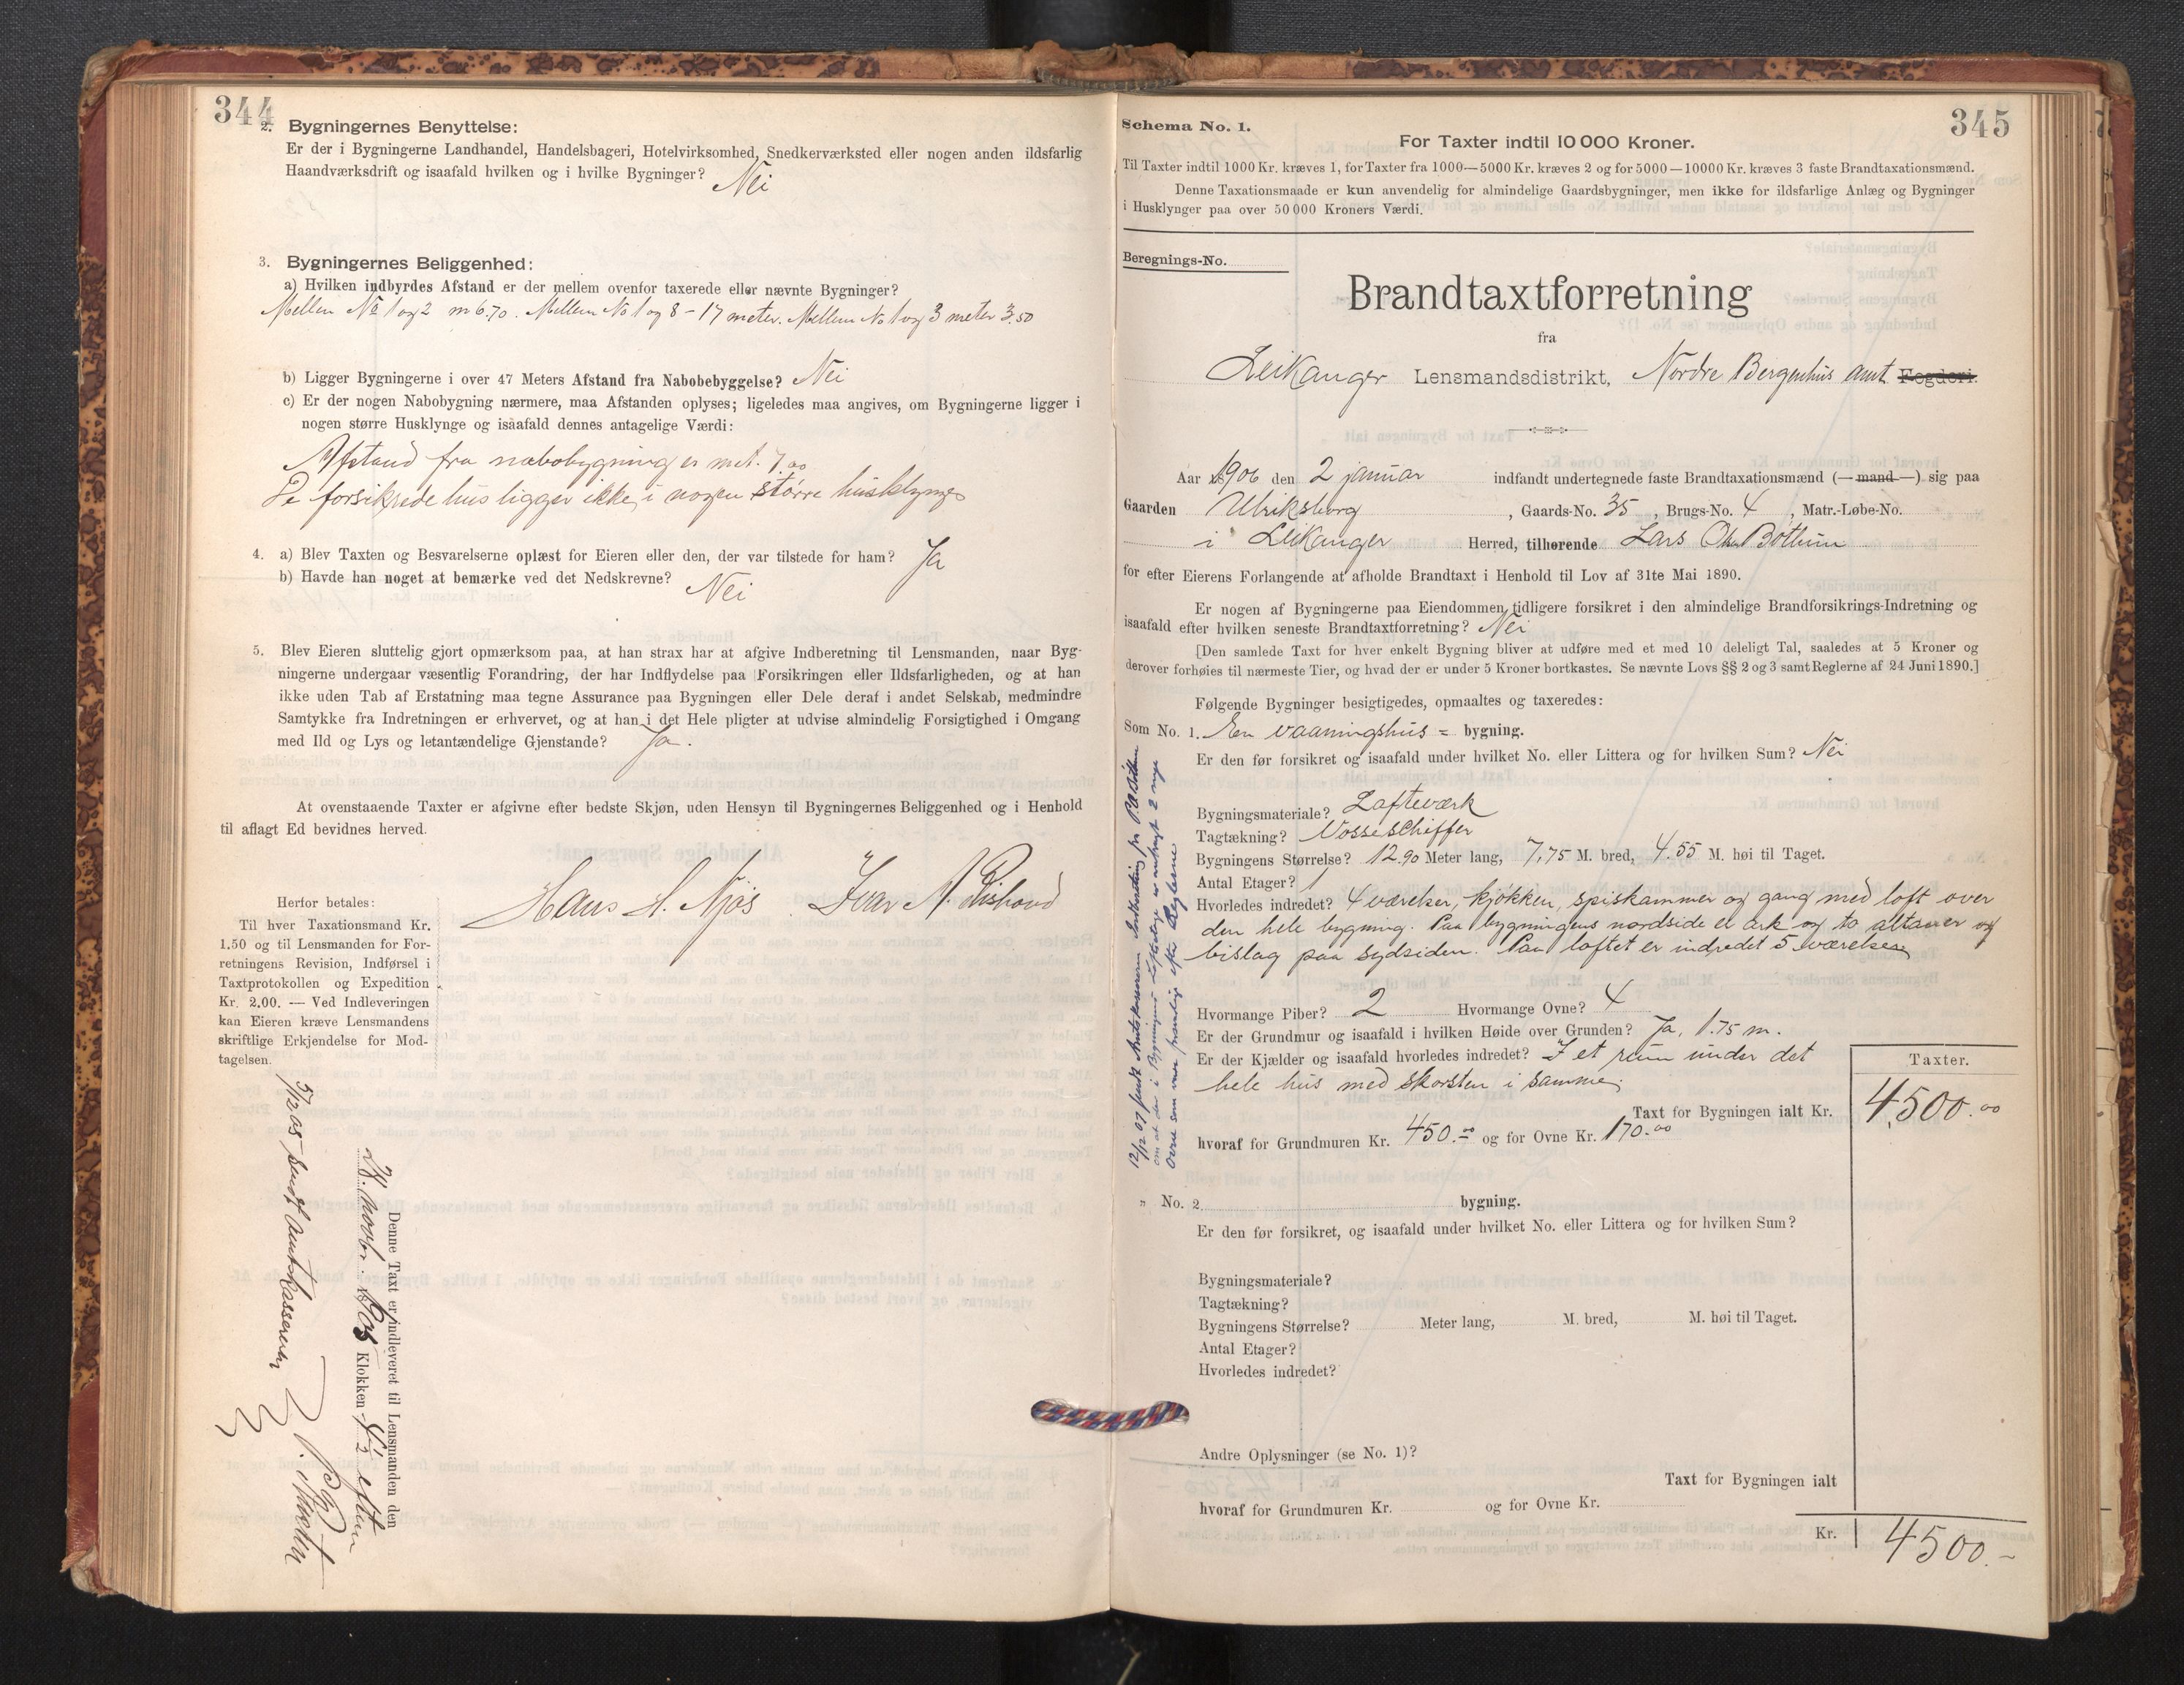 344
2. Bygningernes Benyttelse:
Er der i Bygningerne Landhandel, Handelsbageri, Hotelvirksomhed, Snedkerværksted eller nogen anden ildsfarlig
Haandværksdrift og isaafald hvilken og i hvilke Bygninger? Nei
3. Bygningernes Beliggenhed:
a) Hvilken indbyrdes Afstand er der mellem ovenfor taxerede eller nævnte Bygninger?
Mellem No 1 og 2 m 6.70. Mellem No 1 og 8 - 17 meter. Mellem No 1 og 3 meter 3.50
b) Ligger Bygningerne i over 47 Meters Afstand fra Nabobebyggelse? Nei
c) Er der nogen Nabobygning nærmere, maa Afstanden oplyses; ligeledes maa angives, om Bygningerne ligger i
nogen større Husklynge og isaafald dennes antagelige Værdi:
Afstand fra nabobygning er met. 7.00
De forsikrede hus ligger ikke i nogen större husklynge
4. a) Blev Taxten og Besvarelserne oplæst for Eieren eller den, der var tilstede for ham? Ja
b) Havde han noget at bemærke ved det Nedskrevne? Nei
5. Blev Eieren sluttelig gjort opmærksom paa, at han strax har at afgive Indberetning til Lensmanden, naar Byg-
ningerne undergaar væsentlig Forandring, der har Indflydelse paa Forsikringen eller Ildsfarligheden, og at han
ikke uden Tab af Erstatning maa tegne Assurance paa Bygningen eller Dele deraf i andet Selskab, medmindre
Samtykke fra Indretningen er erhvervet, og at han i det Hele pligter at udvise almindelig Forsigtighed i Omgang
med Ild og Lys og letantændelige Gjenstande? Ja.
At ovenstaaende Taxter er afgivne efter bedste Skjøn, uden Hensyn til Bygningernes Beliggenhed og i Henhold
til aflagt Ed bevidnes herved.
Hans H. Njøs. Ivar A.
Herfor betales:
Til hver Taxationsmand Kr.
1.50 og til Lensmanden for For-
retningens Revision, Indførsel i
Taxtprotokollen og Expedition
Kr. 2.00. — Ved Indleveringen
kan Eieren kræve Lensmandens
skriftlige Erkjendelse for Mod-
tagelsen.
Denne Taxt er indleveret til Lensmanden den
Klokken
sendt Amtskassereren
345
Schema No. 1.
For Taxter indtil 10 000 Kroner.
Til Taxter indtil 1000 Kr. kræves 1, for Taxter fra 1000—5000 Kr. kræves 2 og for 5000—10000 Kr. kræves 3 faste Brandtaxationsmænd.
Denne Taxationsmaade er kun anvendelig for almindelige Gaardsbygninger, men ikke for ildsfarlige Anlæg og Bygninger
i Husklynger paa over 50 000 Kroners Værdi.
Beregnings-No.
Brandtaxtforretning
fra
Leikanger Lensmandsdistrikt, Nordre Bergenhus amt Fogderi.
Aar 1906 den 2 januar indfandt undertegnede faste Brandtaxationsmænd (— mand —) sig paa
Gaarden Ulriksborg, Gaards-No. 35, Brugs-No. 4, Matr.-Løbe-No.
i Leikanger Herred, tilhørende Lars Bøthun
for efter Eierens Forlangende at afholde Brandtaxt i Henhold til Lov af 31te Mai 1890.
Er nogen af Bygningerne paa Eiendommen tidligere forsikret i den almindelige Brandforsikrings-Indretning og
isaafald efter hvilken seneste Brandtaxtforretning? Nei
[Den samlede Taxt for hver enkelt Bygning bliver at udføre med et med 10 deleligt Tal, saaledes at 5 Kroner og
derover forhøies til nærmeste Tier, og hvad der er under 5 Kroner bortkastes. Se nævnte Lovs §§ 2 og 3 samt Reglerne af 24 Juni 1890.]
Følgende Bygninger besigtigedes, opmaaltes og taxeredes:
Som No. 1. En vaaningshus = bygning.
Er den før forsikret og isaafald under hvilket No. eller Littera og for hvilken Sum? Nei
Bygningsmateriale? Lafteværk
Tagtækning? Vosseschiffer
Bygningens Størrelse? 12.90 Meter lang, 7,75 M. bred, 4.55 M. høi til Taget.
Antal Etager? 1
Hvorledes indredet? 4 værelser, kjøkken, spiskammer og gang med loft over
den hele bygning. Paa bygningens nordside et ark og to altaner og
bislag paa sydsiden. Paa loftet er indredet 5 værelser
Hvormange Piber? 2 Hvormange Ovne? 4
Er der Grundmur og isaafald i hvilken Høide over Grunden? Ja, 1.75 m.
Er der Kjælder og isaafald hvorledes indredet? I et rum under det
hele hus med skorsten i samme.
Taxter.
Taxt for Bygningen ialt Kr. 4,500.00
hvoraf for Grundmuren Kr. 450.00 og for Ovne Kr. 170.00
" No. 2 bygning.
Er den før forsikret, og isaafald under hvilket No. eller Littera og for hvilken Sum?
Bygningsmateriale?
Tagtækning?
Bygningens Størrelse? Meter lang, M. bred, M. høi til Taget.
Antal Etager?
Hvorledes indredet?
Andre Oplysninger (se No. 1)?
Taxt for Bygningen ialt
hvoraf for Grundmuren Kr. og for Ovne Kr.
Kr. 4500.-
12/12 07 sendt Amtskassereren Indberetning fra
om at der i Bygningens er anbragt 2 nye
Ovne som efter Reglerne